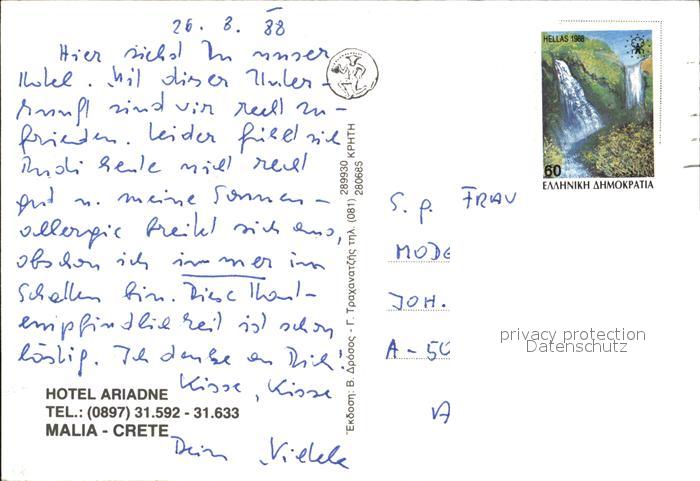 26. 8. 88
Hier siehst Du unser
Hotel. Mit dieser Unter-
kunft sind wir recht zu-
frieden. Leider fühlt sich
Rudi heute nicht recht
gut u. meine Sonnen-
allergie breitet sich aus,
obschon ich immer im
Schatten bin. Diese Haut-
empfindlichkeit ist schon
lästig. Ich denke an Dich!
Küsse, Küsse
Dein
HOTEL ARIADNE
TEL.: (0897) 31.592 - 31.633
MALIA - CRETE
Έκδοση: Β. Δρόσος - Γ. Τραχανατζής τηλ. (081) 289930 280685 ΚΡΗΤΗ
HELLAS 1988
60
ΕΛΛΗΝΙΚΗ ΔΗΜΟΚΡΑΤΙΑ
S. g. FRAU
MODE
JOH.
A - 50
privacy protection
Datenschutz